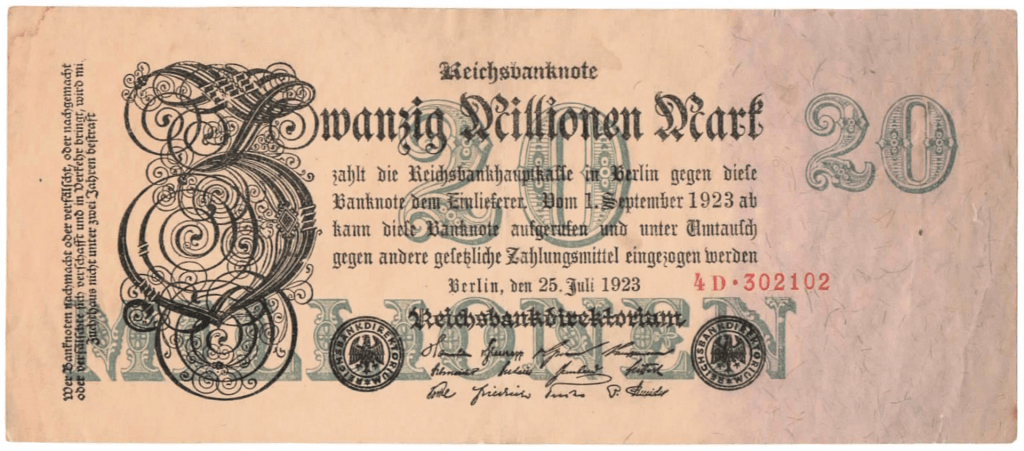 Wer Banknoten nachmacht oder verfälscht, oder nachgemachte
oder verfälschte sich verschafft und in Verkehr bringt, wird mit
Zuchthaus nicht unter zwei Jahren bestraft
Reichsbanknote
Zwanzig Millionen Mark
20
20
zahlt die Reichsbankhauptkasse in Berlin gegen diese
Banknote dem Einlieferer. Vom 1. September 1923 ab
kann diese Banknote aufgerufen und unter Umtausch
gegen andere gesetzliche Zahlungsmittel eingezogen werden
Berlin, den 25. Juli 1923
4D·302102
MILLIONEN
Reichsbankdirektorium
REICHSBANKDIREKTORIUM
REICHSBANKDIREKTORIUM